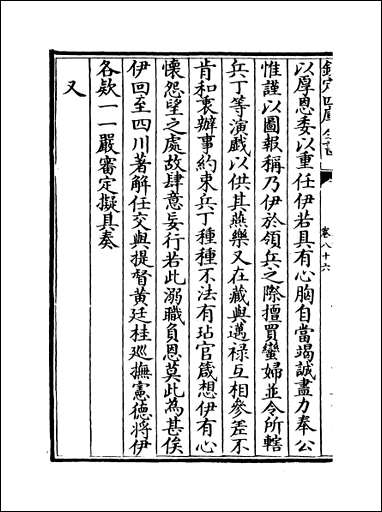 欽定四庫全書
卷八十六
以厚恩委以重任伊若具有心胸自當竭誠盡力奉公
惟謹以圖報稱乃伊於領兵之際擅買蠻婦並令所轄
兵丁等演戲以供其燕樂又在藏與邁祿互相參差不
肯和衷辦事約束兵丁種種不法有玷官箴想伊有心
懷怨望之處故肆意妄行若此溺職負恩莫此為甚俟
伊回至四川著解任交與提督黃廷桂巡撫憲德將伊
各款一一嚴審定擬具奏
又